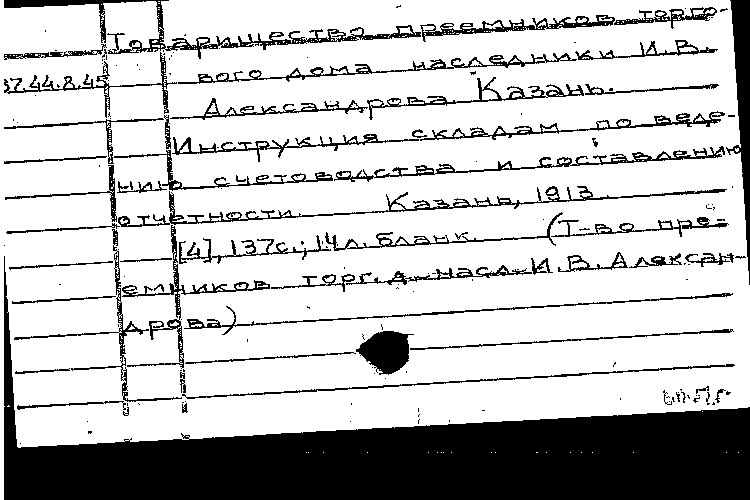 Товарищество преемников торго-
37.44.8.45 вого дома наследники И.В.
Александрова. Казань.
Инструкция складам по веде-
нию счетоводства и составлению
отчетности. Казань, 1913.
[4], 137с.; 14л. бланк. (Т-во пре-
емников торг. д. насл. И.В. Алексан-
дрова).